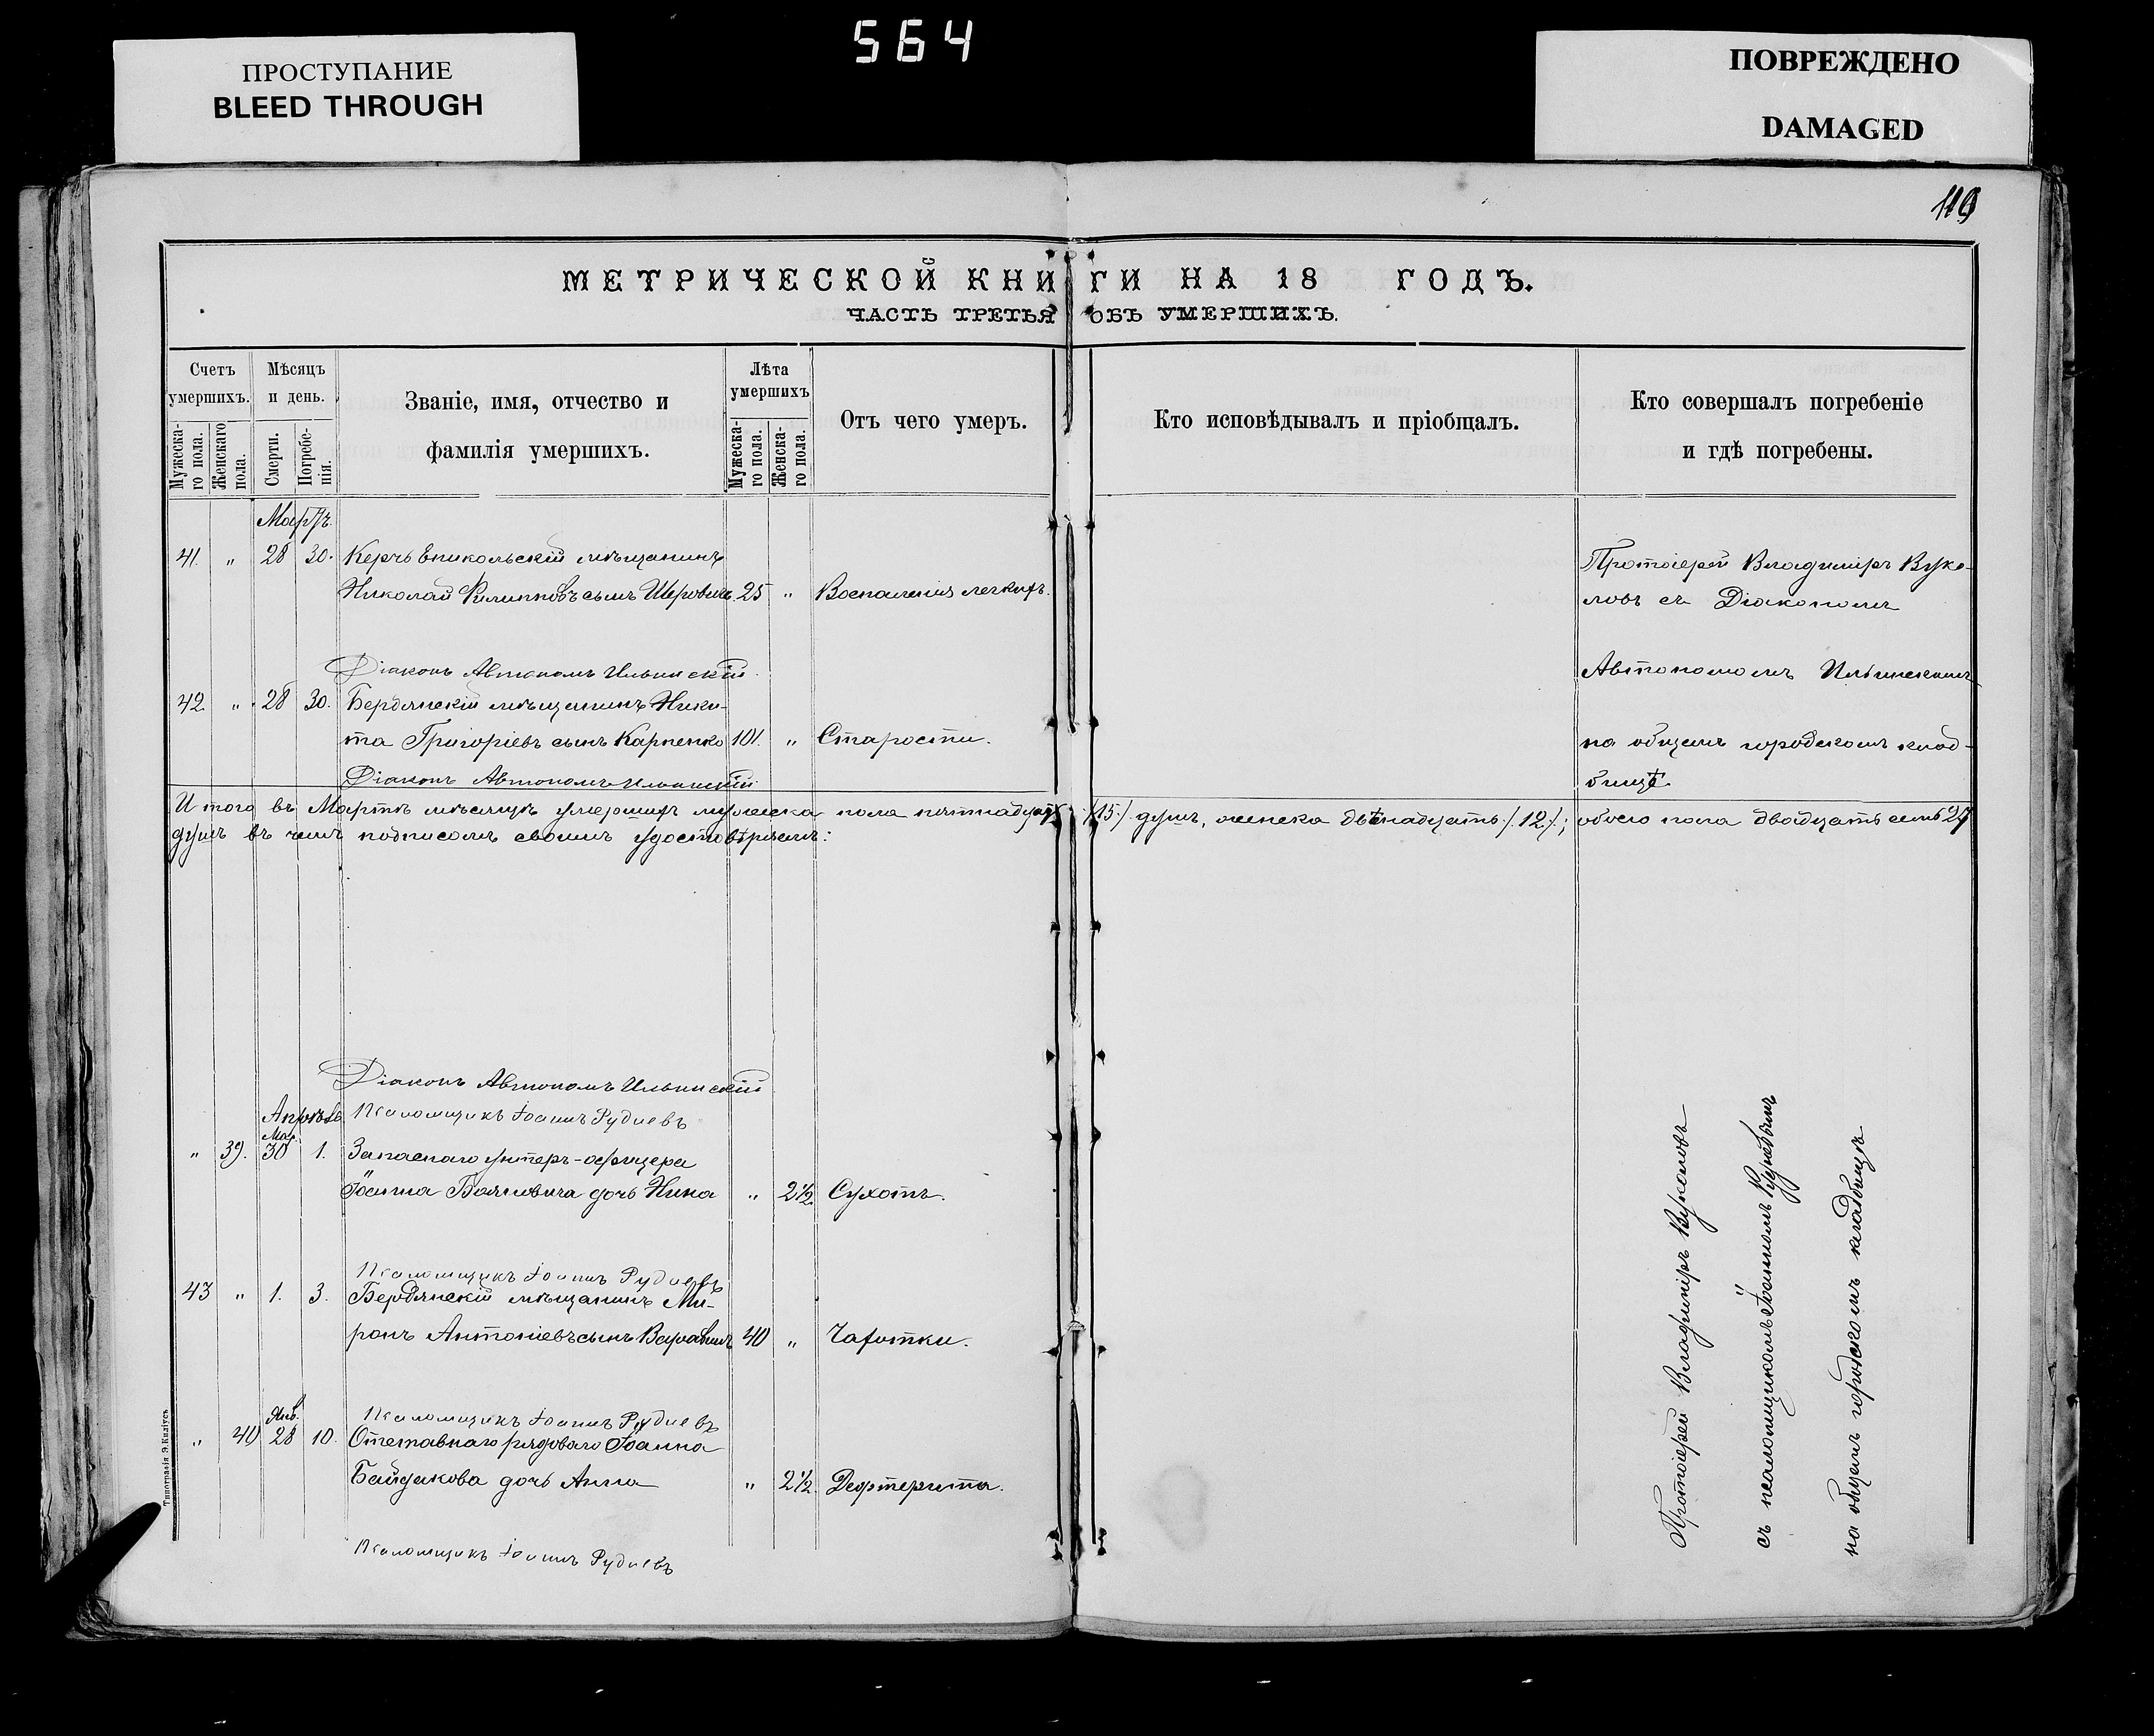 564
ПРОСТУПАНИЕ
BLEED THROUGH
ПОВРЕЖДЕНО
DAMAGED
МЕТРИЧЕСКОЙ КНИГИ НА 18 ГОДЪ.
ЧАСТЬ ТРЕТЬЯ ОБЪ УМЕРШИХЪ.
Счетъ умершихъ.
Мужеска-го пола.
Женскаго пола.
Мѣсяцъ и день.
Смерти.
Погребе-нія.
Званіе, имя, отчество и
фамилія умершихъ.
Лѣта умершихъ
Мужеска-го пола.
Женска-го пола.
Отъ чего умеръ.
Кто исповѣдывалъ и пріобщалъ.
Кто совершалъ погребеніе
и гдѣ погребены.
Мартъ
41. " 28 30. Керчь Еникольскій мѣщанинъ
Николай Филипповъ сынъ 25 " Воспаленія легкихъ.
Протоіерей Владиміръ Вуко-
ловъ съ Діакономъ
Діаконъ Автономъ Ильинскій
Автономомъ Ильинскимъ
42. " 28 30. Бердянскій мѣщанинъ Ники-
та Григоріевъ сынъ Карпенко 101. " Старости.
на общемъ городскомъ клад-
бищѣ
Діаконъ Автономъ Ильинскій
Итого въ Мартѣ мѣсяцѣ умершихъ мужеска пола пятнадцать /15./ душъ, женска двѣнадцать /.12./; обоего пола двадцать семь 27
душъ въ чемъ подписомъ своимъ удостовѣряемъ:
Діаконъ Автономъ Ильинскій
Псаломщикъ Іоаннъ Рудневъ
Апрѣль
Мар.
" 39. 30 1. Запаснаго унтеръ-офицера
Іоанна дочь Нина " 2½ Сухотъ.
Псаломщикъ Іоаннъ Рудневъ
43 " 1. 3. Бердянскій мѣщанинъ Ми-
ронъ Антоніевъ сынъ 40 " Чахотки.
Псаломщикъ Іоаннъ Рудневъ
" 40 28 10. Отставнаго рядоваго Іоанна
Байдакова дочь Анна " 2½. Дефтерита.
Псаломщикъ Іоаннъ Рудневъ
Протоіерей Владиміръ Вуколовъ
съ псаломщикомъ Іоанномъ Рудневымъ
на общемъ городскомъ кладбищѣ
Типографія Э. Киліусъ